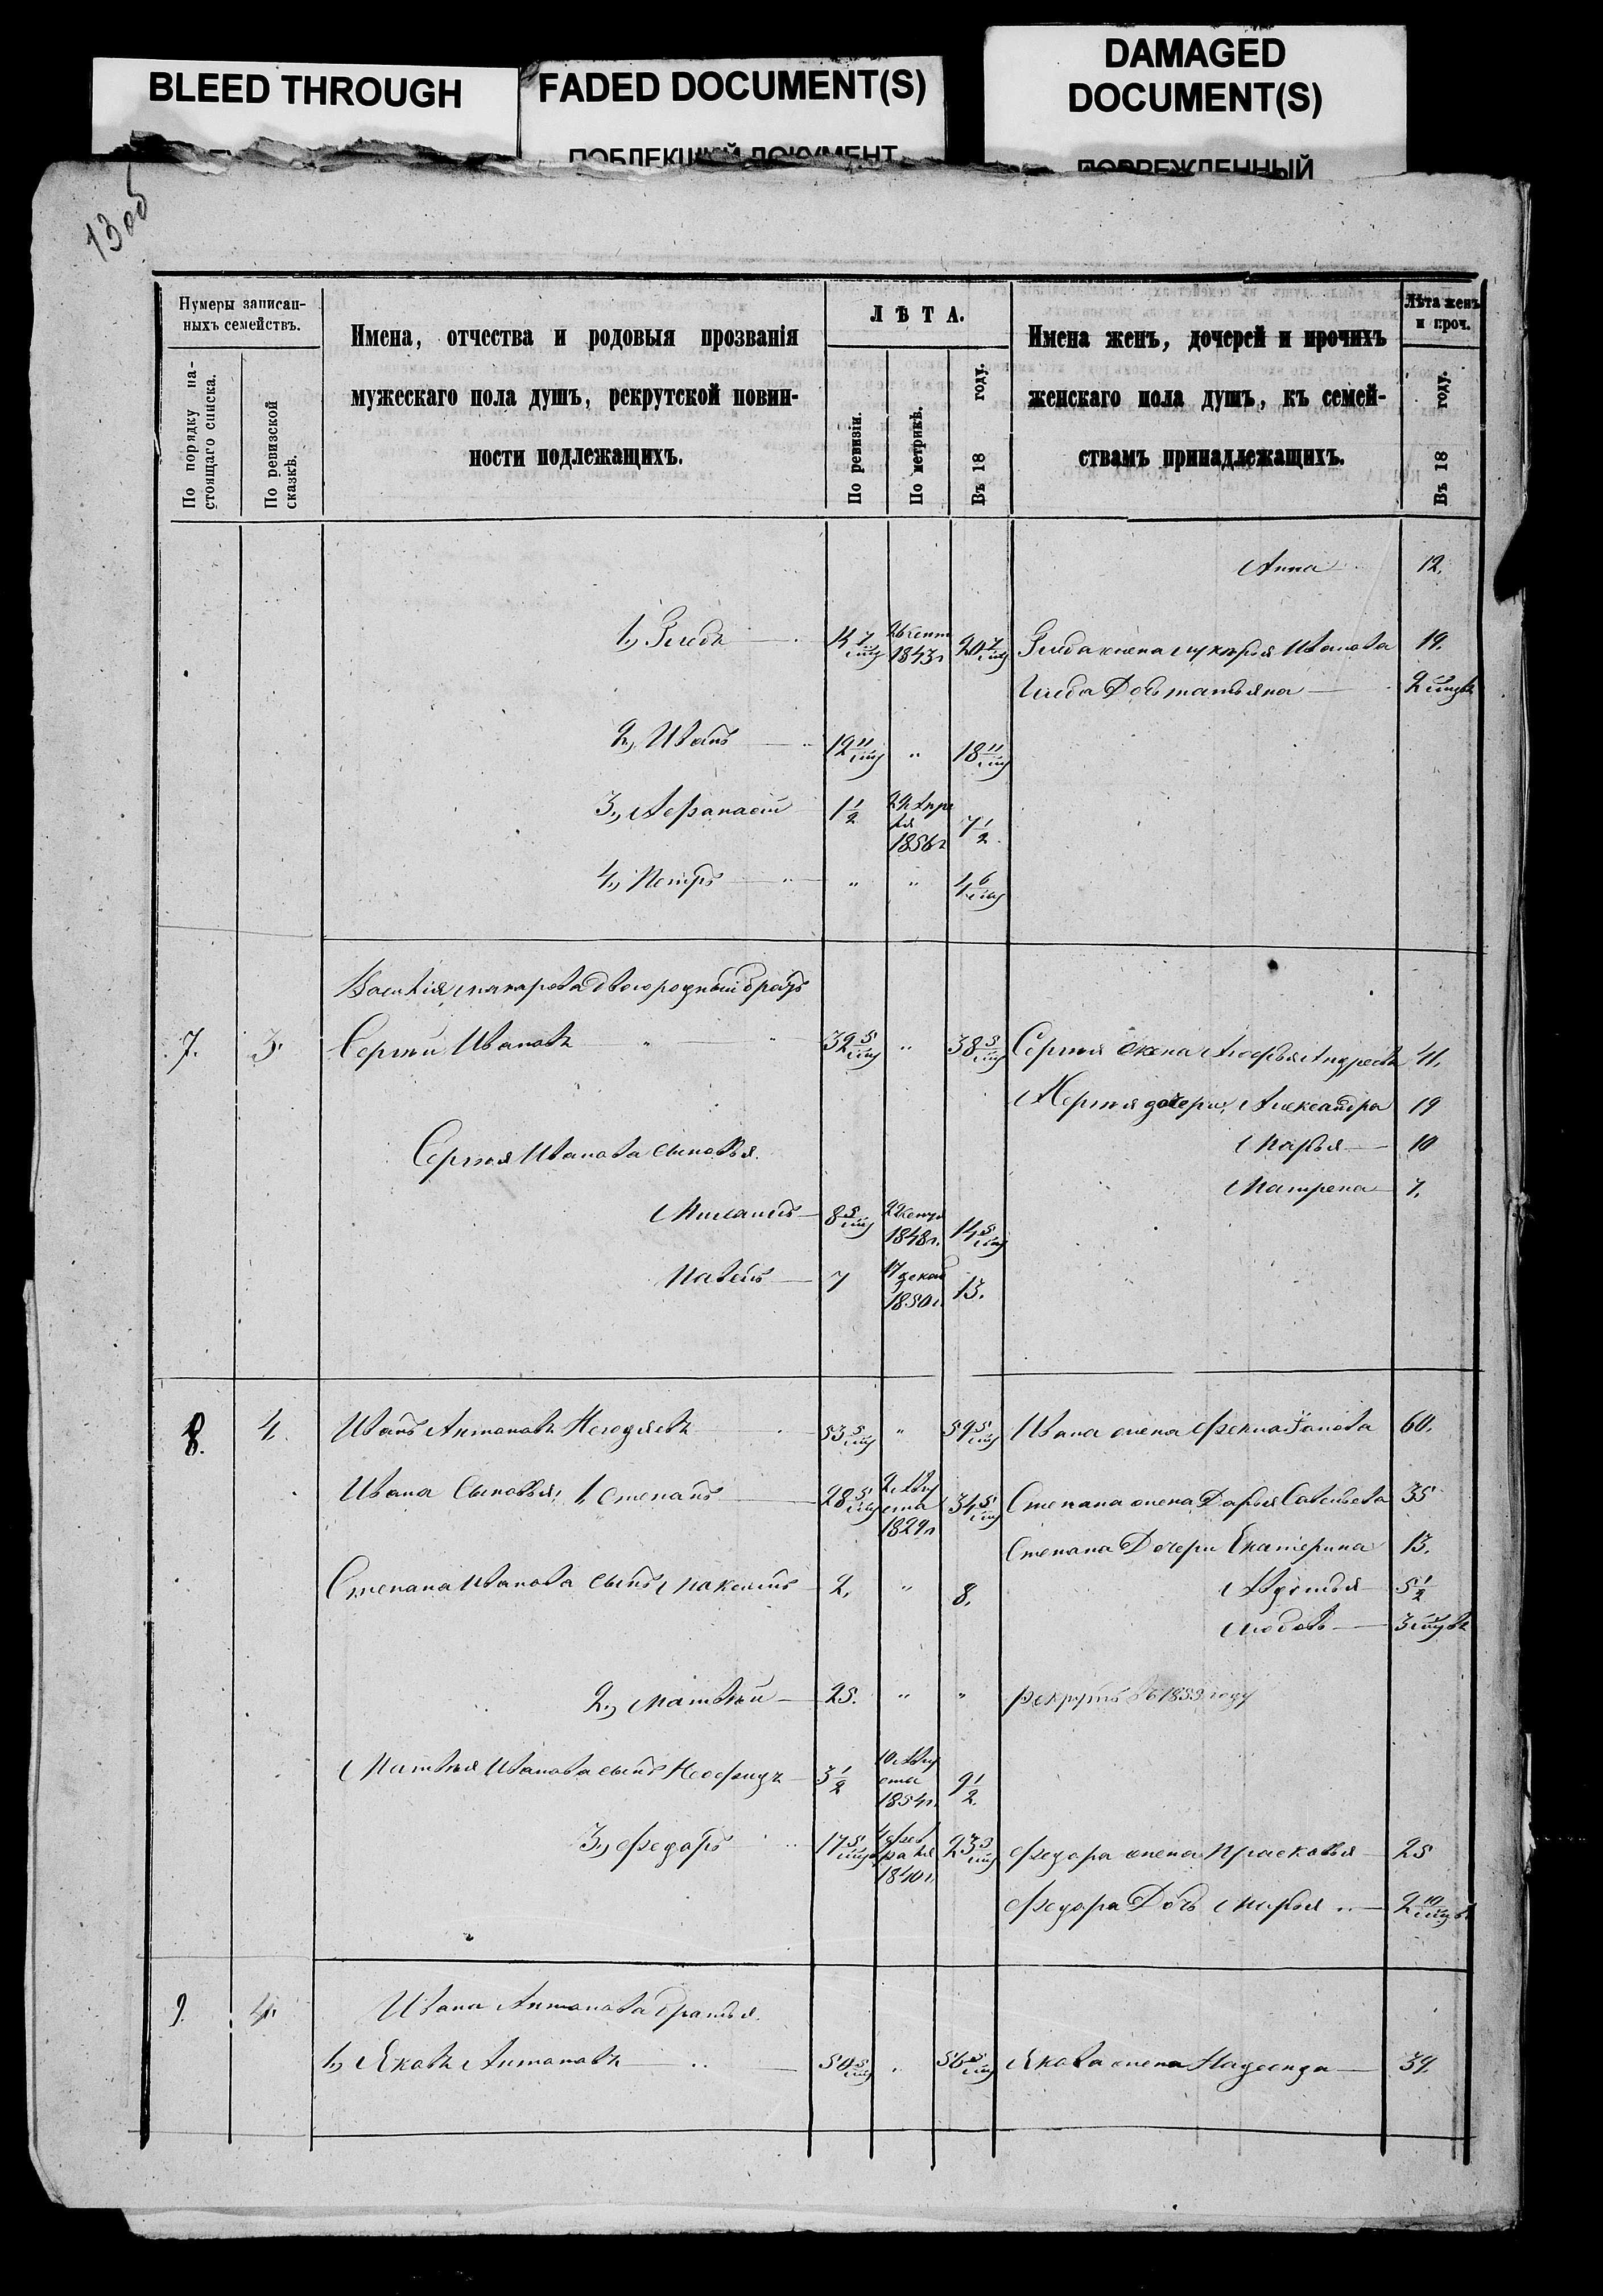 BLEED THROUGH
FADED DOCUMENT(S)
ПОБЛЕКШИЙ ДОКУМЕНТ
DAMAGED
DOCUMENT(S)
ПОВРЕЖДЕННЫЙ
13об
Нумеры записан-
ныхъ семействъ.
По порядку на-
стоящаго списка.
По ревизской
сказкѣ.
Имена, отчества и родовыя прозванія
мужескаго пола душъ, рекрутской повин-
ности подлежащихъ.
ЛѢТА.
По ревизіи.
По метрикѣ.
Въ 18 году.
Имена женъ, дочерей и прочихъ
женскаго пола душъ, къ семей-
ствамъ принадлежащихъ.
Лѣта женъ
и проч.
Въ 18 году.
Анна 12.
1, Глебъ 14 7/мц 26 Сент 1843г 20 7/мц Глеба жена Лукерья Иванова 19.
Глеба Дочь татьяна 2 мцвъ
2, Иванъ 12 11/мц " 18 11/мц
3, Афанасій 1 1/2 22 Апре ля 1856г 7 1/2
4, Петръ " " 4 6/мц
Василія Макарова двоюродный братъ
7. 3. Сергѣй Ивановъ 32 5/мц " 38 5/мц Сергѣя жена Анофья Андреева 41.
Сергѣя дочери, Александра 19
Сергѣя Иванова сыновья.
Марья 10
Матрена 7.
Михаилъ 8 5/мц 1848г. 14 5/мц
Павелъ 7 17 декаб 1850г. 13.
8. 4. Иванъ Антоновъ Негодяевъ 53 5/мц " 59 5/мц Ивана жена Фекла 60.
Ивана Сыновья, 1, Степанъ 28 5/мц 2 Авгу ста 1829г 34 5/мц Степана жена Дарья Савельева 35
Степана Дочери Екатерина 13.
Степана Иванова сынъ Максимъ 2. " 8. Авдотья 5 1/2
Любовь 3 мцвъ
2, Матвѣй 25. " " рекрутъ въ 1859 году
Матвѣя Иванова сынъ Неофидъ 3 1/2 10 Авгу ста 1854г. 9 1/2.
3, Федоръ 17 5/мц Фев раля 1840г. 23 5/мц Федора жена Прасковья 25
Федора Дочь Марья 2 10/мцвъ
9. 4. Ивана Антонова братья.
1, Яковъ Антоновъ 50 5/мц " 56 5/мц Якова жена Надежда 39.